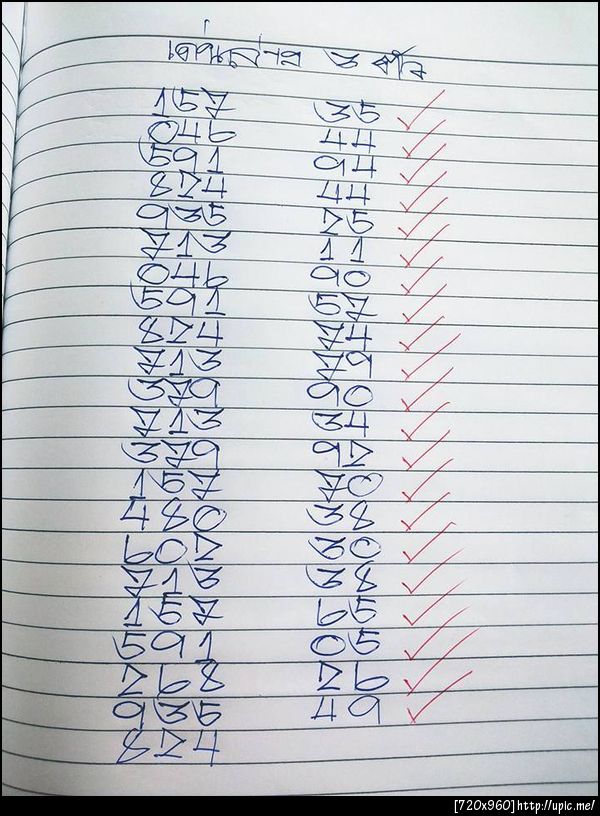 เด่นล่าง 3 ตัว
157 35
046 44
591 94
874 44
935 25
713 11
046 90
591 57
874 74
713 79
379 90
713 34
379 92
157 70
480 38
602 30
713 38
157 65
591 05
268 26
935 49
874
[720x960]http://upic.me/